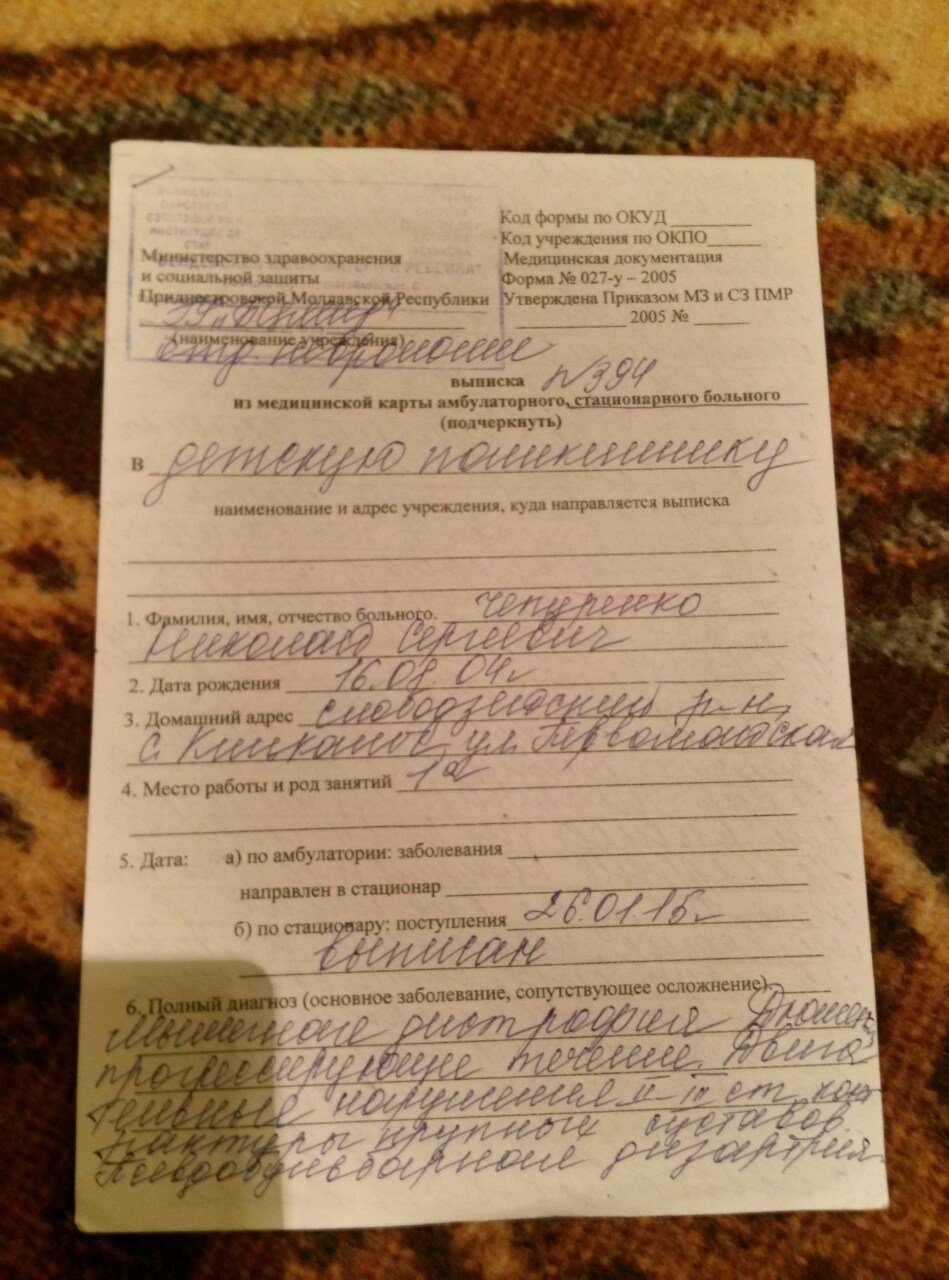 Код формы по ОКУД
Код учреждения по ОКПО
Министерство здравоохранения
Медицинская документация
и социальной защиты
Форма № 027-у – 2005
Приднестровской Молдавской Республики
Утверждена Приказом МЗ и СЗ ПМР
2005 №
(наименование учреждения)
отд. неврологии
выписка №394
из медицинской карты амбулаторного, стационарного больного
(подчеркнуть)
В детскую поликлинику
наименование и адрес учреждения, куда направляется выписка
1. Фамилия, имя, отчество больного. Чепуренко
Николай Сергеевич
2. Дата рождения 16.08.04г
3. Домашний адрес слободзейский р-н,
с. Кицканы, ул. Первомайская
4. Место работы и род занятий 1а
5. Дата: а) по амбулатории: заболевания
направлен в стационар
б) по стационару: поступления 26.01.16г
выписан
6. Полный диагноз (основное заболевание, сопутствующее осложнение)
Мышечная дистрофия Дюшен,
прогрессирующее течение. Двига
тельные нарушения II-III ст, конт
рактуры крупных суставов.
Псевдобульбарная дизартрия.